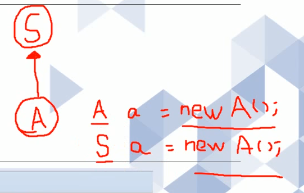 S
A
A a = new A();
S a = new A();